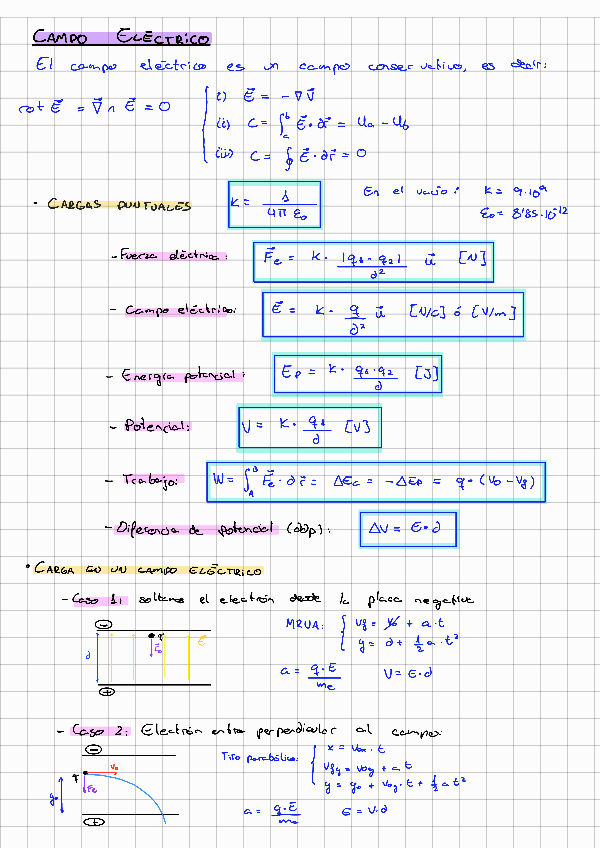 CAMPO ELÉCTRICO
El campo eléctrico es un campo conservativo, es decir:
rot E⃗ = ∇⃗ ∧ E⃗ = 0
i) E⃗ = -∇V⃗
ii) C = ∫ₐᵇ E⃗·∂r⃗ = Ua - Ub
iii) C = ∮ E⃗·∂r⃗ = 0
• CARGAS PUNTUALES K = 1/(4π ε₀) En el vacío: K = 9·10⁹
ε₀ = 8'85·10⁻¹²
- Fuerza eléctrica: F⃗e = K · |q₁·q₂|/∂² u⃗ [N]
- Campo eléctrico: E⃗ = K · q/∂² u⃗ [N/C] ó [V/m]
- Energía potencial: Ep = K · q₁·q₂/∂ [J]
- Potencial: V = K · q₁/∂ [V]
- Trabajo: W = ∫_A^B F⃗e·∂r⃗ = ΔEc = -ΔEp = q·(V₀ - Vf)
- Diferencia de potencial (ddp): ΔV = E·∂
• CARGA EN UN CAMPO ELÉCTRICO
- Caso 1: soltamos el electrón desde la placa negativa
MRUA: Vf = V₀ + a·t
y = ∂ + ½ a·t²
a = q·E/me V = E·∂
⊖
q
F⃗e
E
∂
⊕
- Caso 2: Electrón entra perpendicular al campo:
Tiro parabólico: x = V₀ₓ·t
Vfy = V₀y + a t
y = y₀ + V₀y·t + ½ a t²
a = q·E/me E = V·∂
⊖
q
V₀
F⃗e
y₀
⊕